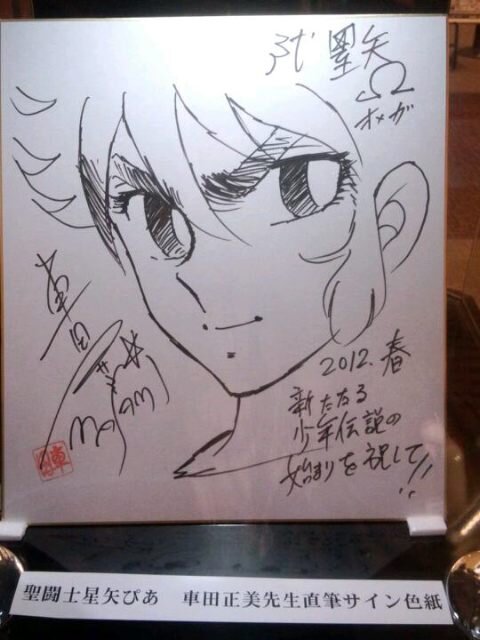 星矢
Ω
オメガ
車田
正美
masami
2012. 春
新たなる
少年伝説の
始まりを祝して!!
車
聖闘士星矢ぴあ 車田正美先生直筆サイン色紙